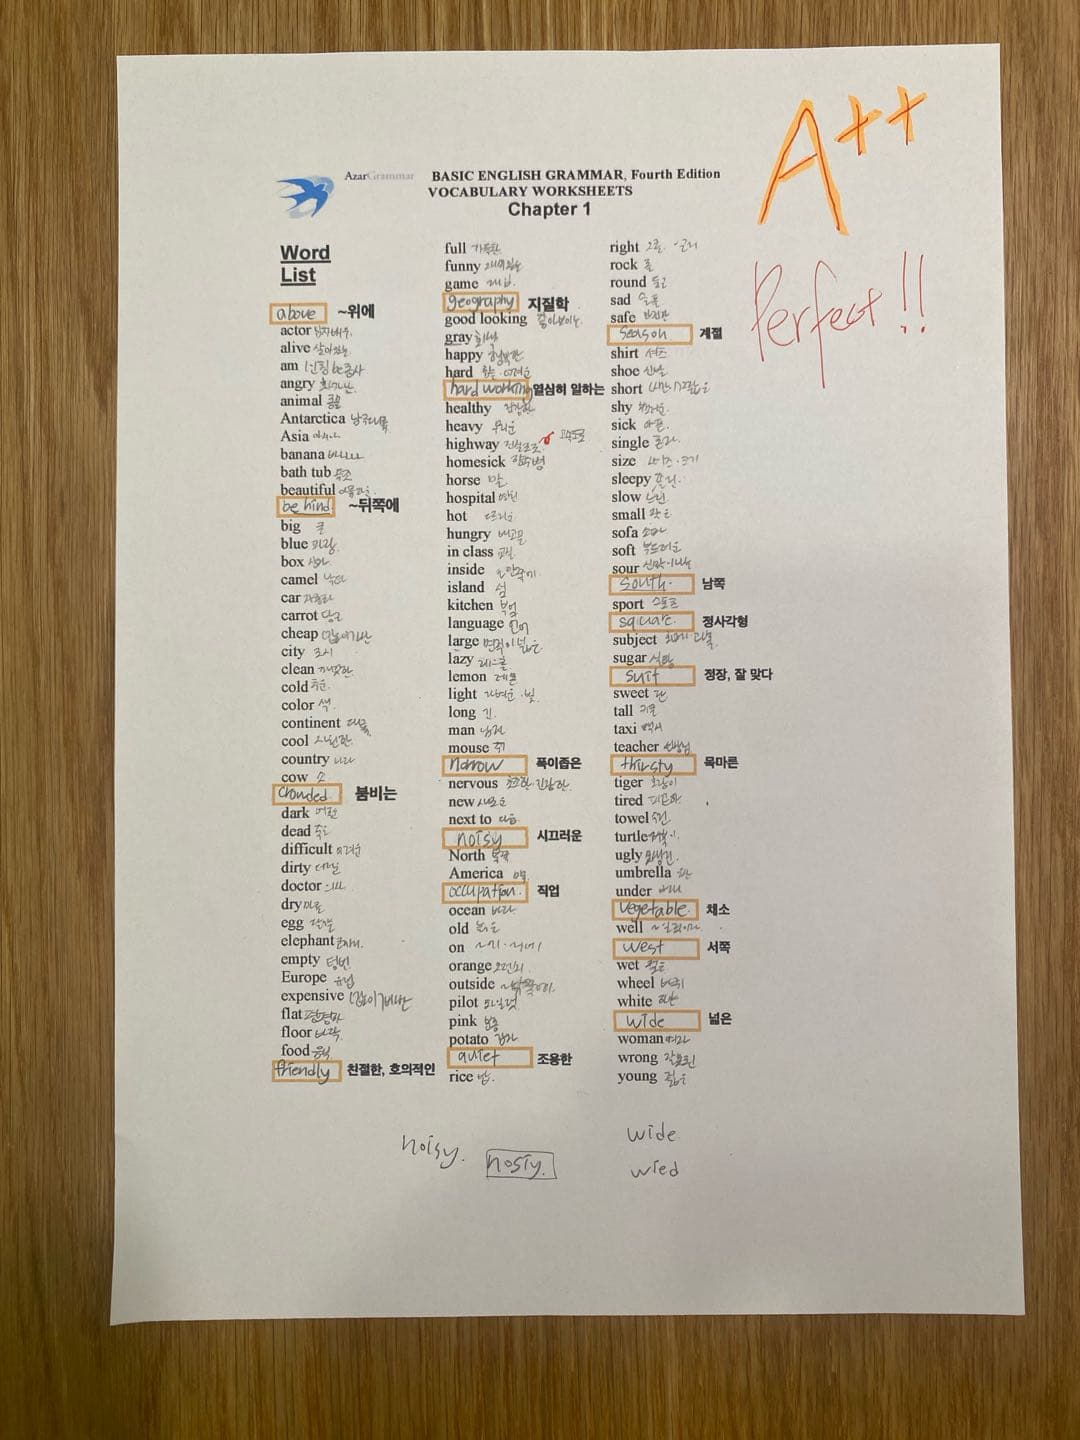 A++
Perfect!!
AzarGrammar
BASIC ENGLISH GRAMMAR, Fourth Edition
VOCABULARY WORKSHEETS
Chapter 1
Word
List
above ~위에
actor 남자배우
alive 살아있는
am 1인칭 be동사
angry 화가난
animal 동물
Antarctica 남극대륙
Asia 아시아
banana 바나나
bath tub 욕조
beautiful 아름다운
behind ~뒤쪽에
big 큰
blue 파랑
box 상자
camel 낙타
car 자동차
carrot 당근
cheap 값이 싼
city 도시
clean 깨끗한
cold 추운
color 색
continent 대륙
cool 시원한
country 나라
cow 소
crowded 붐비는
dark 어두운
dead 죽은
difficult 어려운
dirty 더러운
doctor 의사
dry 마른
egg 달걀
elephant 코끼리
empty 텅빈
Europe 유럽
expensive 값이 비싼
flat 평평한
floor 바닥
food 음식
friendly 친절한, 호의적인
full 가득한
funny 재미있는
game 게임
geography 지질학
good looking 잘생긴
gray 회색
happy 행복한
hard 힘든·어려운
hard working 열심히 일하는
healthy 건강한
heavy 무거운
highway 고속도로
homesick 향수병
horse 말
hospital 병원
hot 더운
hungry 배고픈
in class 교실
inside ~안쪽에
island 섬
kitchen 부엌
language 언어
large 면적이 넓은
lazy 게으른
lemon 레몬
light 가벼운·빛
long 긴
man 남자
mouse 쥐
narrow 폭이좁은
nervous 초조한·긴장한
new 새로운
next to 다음
noisy 시끄러운
North 북쪽
America
occupation. 직업
ocean 바다
old 늙은
on
orange 오렌지
outside ~바깥쪽에
pilot 파일럿
pink 분홍
potato 감자
quiet 조용한
rice 밥
right 오른·권리
rock 돌
round 둥근
sad 슬픈
safe 안전한
season 계절
shirt 셔츠
shoe 신발
short
shy
sick 아픈
single 혼자
size 사이즈·크기
sleepy 졸린
slow 느린
small 작은
sofa 소파
soft 부드러운
sour 신맛이나는
south. 남쪽
sport 스포츠
square. 정사각형
subject
sugar 설탕
suit 정장, 잘 맞다
sweet 단
tall 키큰
taxi 택시
teacher 선생님
thirsty 목마른
tiger 호랑이
tired 피곤한
towel 수건
turtle 거북이
ugly 못생긴
umbrella 우산
under
vegetable. 채소
well
west 서쪽
wet 젖은
wheel 바퀴
white 하얀
wide 넓은
woman 여자
wrong 잘못된
young 젊은
noisy.
nosiy.
wide
wied